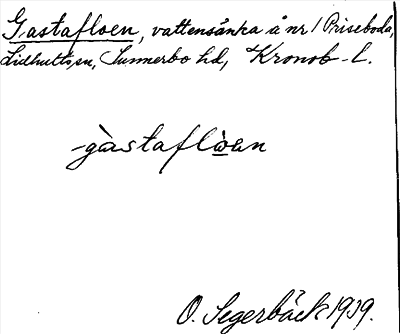 Gastafloen, vattensänka å nr 1 Priseboda,
Lidhults sn, Sunnerbo hd, Kronob. l.
-gàstaflòen
O. Segerbäck 1919.